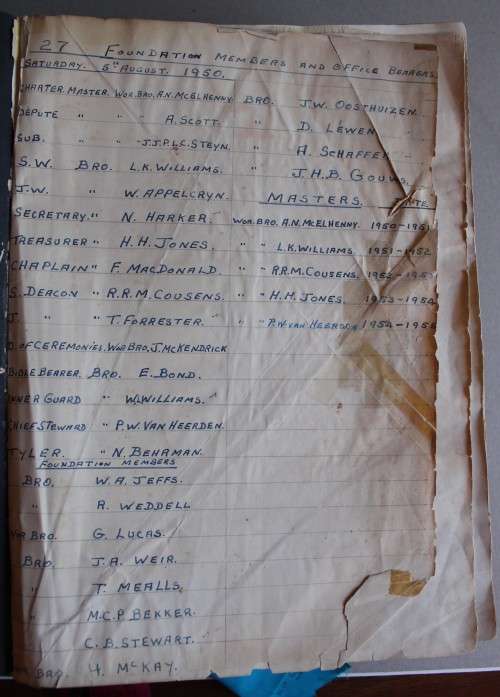 27 FOUNDATION MEMBERS AND OFFICE BEARERS
SATURDAY. 5TH AUGUST. 1950.
CHARTER. MASTER. WOR. BRO. A.N. MCELHENNY. BRO. J.W. OOSTHUIZEN.
DEPUTE " " " A. SCOTT. " D. LEWEN
SUB. " " - J.J.P.L.C. STEYN. " A. SCHAFFER
S.W. BRO. L.K. WILLIAMS. " J.H.B. GOUWS.
J.W. " W. APPELCRYN. MASTERS.
SECRETARY. " N. HARKER. WOR. BRO. A.N. MCELHENNY. 1950-1951
TREASURER " H.H. JONES. " " L.K. WILLIAMS. 1951-1952
CHAPLAIN " F. MACDONALD. " " R.R.M. COUSENS. 1952-1953
S. DEACON " R.R.M. COUSENS. " " H.H. JONES. 1953-1954
J. " " T. FORRESTER. " " P.W. VAN HEERDEN 1954-1955
D. OF CEREMONIES. WOR BRO. J. MCKENDRICK
BIBLE BEARER. BRO. E. BOND.
INNER GUARD " W. WILLIAMS.
CHIEF STEWARD " P.W. VAN HEERDEN.
TYLER. " N. BEHRMAN.
FOUNDATION MEMBERS
BRO. W.A. JEFFS.
" R. WEDDELL
WOR BRO. G. LUCAS.
BRO. J.A. WEIR.
" T. MEALLS.
" M.C.P. BEKKER.
" C.B. STEWART.
BRO. H. MCKAY.